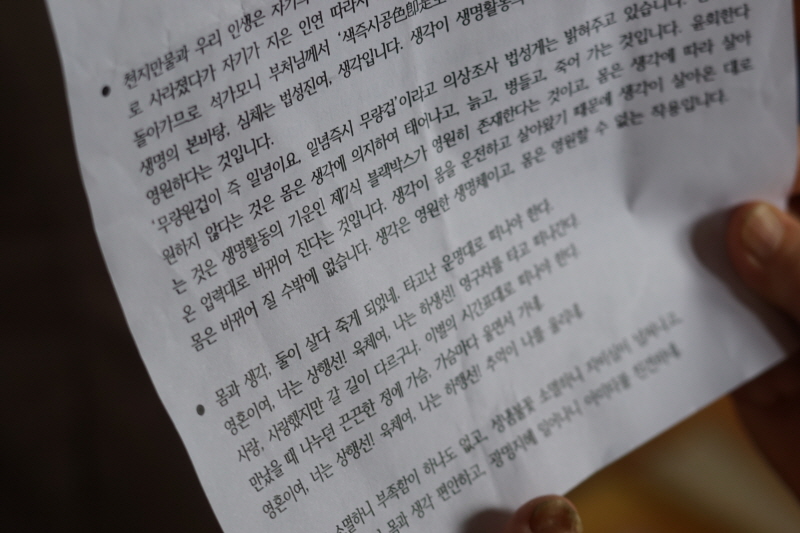 천지만물과 우리 인생은 자기가
로 사라졌다가 자기가 지은 인연 따라서
돌아가므로 석가모니 부처님께서 '색즉시공色卽是空
생명의 본바탕, 심체는 법성진여, 생각입니다. 생각이 생명활동의
영원하다는 것입니다.
'무량원겁이 즉 일념이요, 일념즉시 무량겁'이라고 의상조사 법성게는 밝혀주고 있습니다.
원하지 않다는 것은 몸은 생각에 의지하여 태어나고, 늙고, 병들고, 죽어 가는 것입니다. 윤회한다
는 것은 생명활동의 기운인 제7식 블랙박스가 영원히 존재한다는 것이고, 몸은 생각에 따라 살아
온 입력대로 바뀌어 진다는 것입니다. 생각이 몸을 운전하고 살아왔기 때문에 생각이 살아온 대로
몸은 바뀌어 질 수밖에 없습니다. 생각은 영원한 생명체이고, 몸은 영원할 수 없는 작용입니다.
● 몸과 생각, 둘이 살다 죽게 되었네. 타고난 운명대로 떠나야 한다.
영혼이여, 너는 상행선! 육체여, 나는 하행선! 영구차를 타고 떠나간다.
사랑, 사랑했지만 갈 길이 다르구나. 이별의 시간표대로 떠나야 한다.
만났을 때 나누던 끈끈한 정에 가슴, 가슴마다 울면서 가네.
영혼이여, 너는 상행선! 육체여, 나는 하행선! 추억이 나를 울리네.
소멸하니 부족함이 하나도 없고, 성냄불꽃 소멸하니 자비심이 일어나고,
몸과 생각 편안하고,